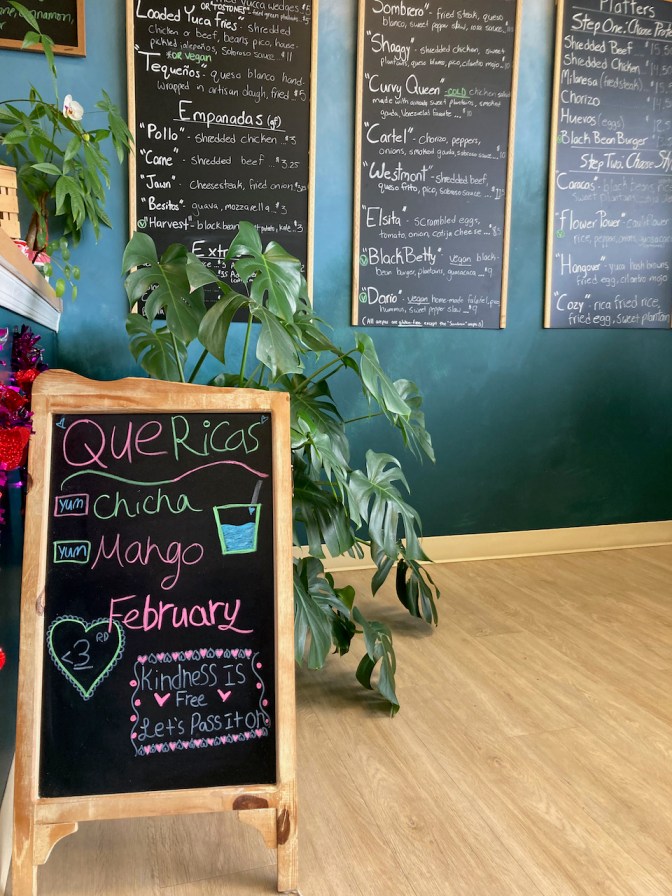 cinnamon,
Loaded Yuca fries - shredded
chicken or beef, beans pico, house-
pickled jalapeños, sabroso sauce .. $11
FOR VEGAN
"Tequeños" - queso blanco hand-
wrapped in artisan dough, fried .. $5
Empanadas (gf)
"Pollo" - shredded chicken .. $3
"Carne" - shredded beef .. $3.25
"Jawn" - cheesesteak, fried onion
"Besitos" - guava, mozzarella .. $3
"Harvest" - black bean, kale .. $3
Extr
Sombrero" - fried steak, queso
blanco, sweet pepper slaw,
"Shaggy" - shredded chicken, sweet
plantain, pico, cilantro mojo
"Curvy Queen" - COLD chicken salad
made with avocado sweet plantains, smoked
gouda, Venezuela's favorite
"Cartel" - chorizo, peppers,
onions, smoked gouda, sabroso sauce
"Westmont" - shredded beef,
queso frito, pico, sabroso sauce
"Elsita" - scrambled eggs,
tomato, onion, cotija cheese
"Black Betty" - vegan black-
bean burger, plantains, guasacaca .. $9
"Dario" - vegan home-made falafel,
hummus, sweet pepper slaw .. $9
Platters
Step One: Choose Prote
Shredded Beef
Shredded Chicken
Milanesa (fried steak)
Chorizo
Huevos (eggs)
Black Bean Burger
Step Two: Choose
Caracas - black beans,
sweet plantains
"Flower Power"
rice,
"Hangover" - yuca hash browns,
fried egg, cilantro mojo
"Cozy" - rica fried rice,
fried egg, sweet plantain
Que Ricas
Yum Chicha
Yum Mango
February
<3 RD
Kindness IS
Free
Let's Pass It on